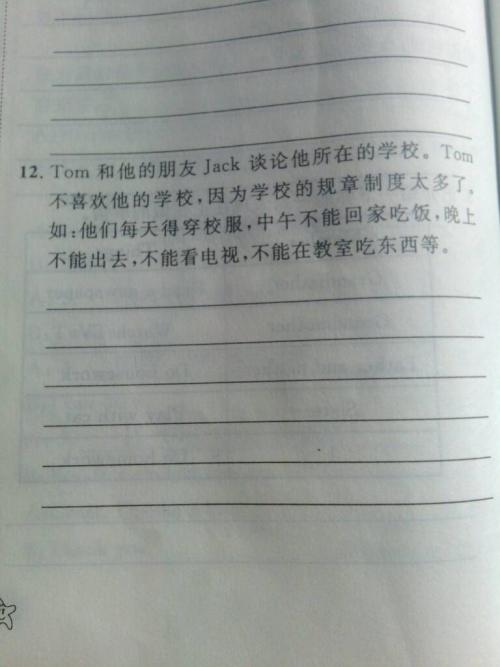 12. Tom 和他的朋友 Jack 谈论他所在的学校。Tom
不喜欢他的学校,因为学校的规章制度太多了,
如:他们每天得穿校服,中午不能回家吃饭,晚上
不能出去,不能看电视,不能在教室吃东西等。